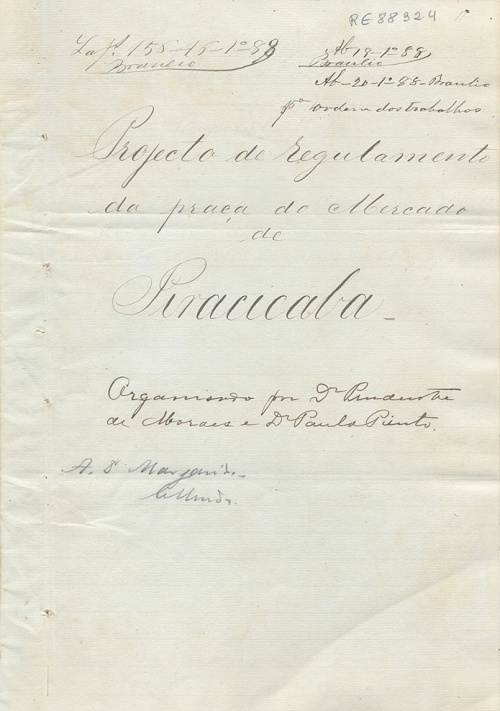 RE88324
155-15-1º88
Braulio
Ab 19-1º88
Braulio
Ab-20-1º-88-Braulio
pª ordem dos trabalhos.
Projecto de regulamento
da praça do Mercado
de
Piracicaba-
Organisado por Dr Prudente
de Moraes e Dr Paulo Pinto.
A. Dª Margarida